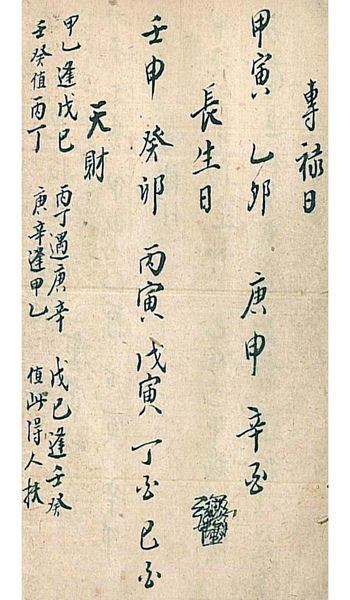 專祿日
甲寅 乙卯 庚申 辛酉
長生日
壬申 癸卯 丙寅 戊寅 丁酉 己酉
天財
甲乙逢戊己 丙丁遇庚辛 戊己逢壬癸
壬癸值丙丁 庚辛逢甲乙 值此得人扶